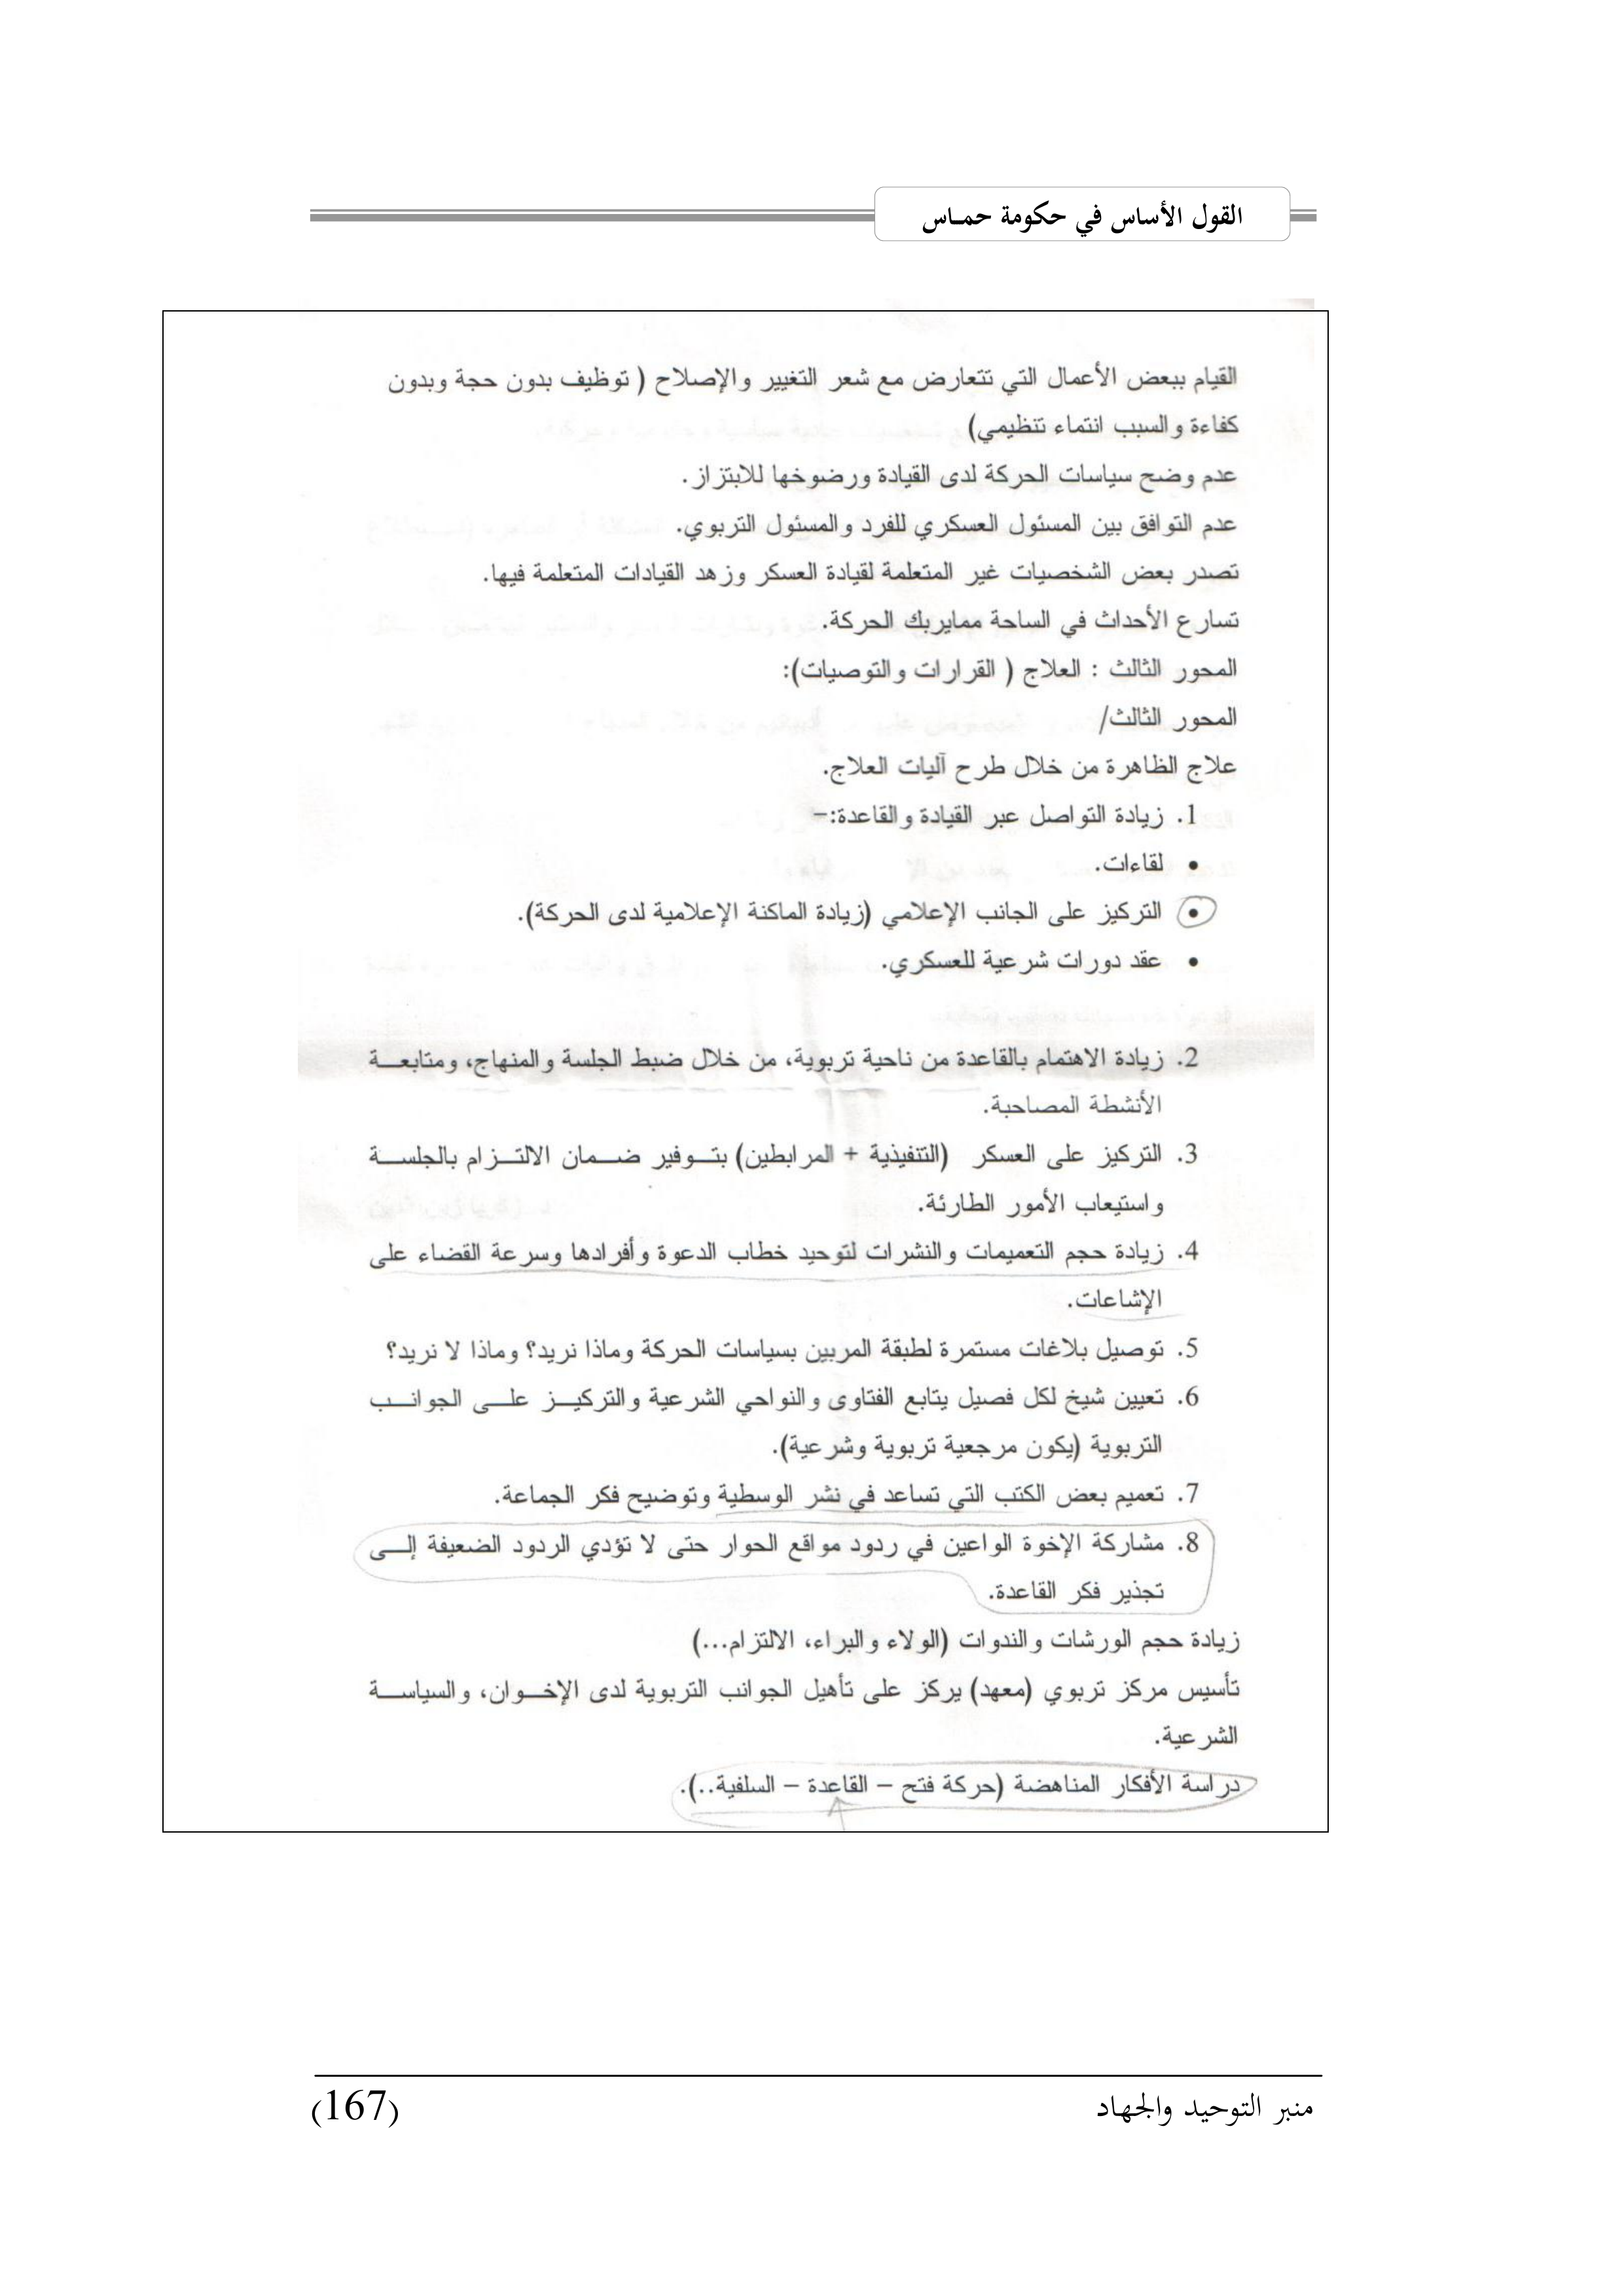 القول الأساس في حكومة حمـاس
القيام ببعض الأعمال التي تتعارض مع شعر التغيير والإصلاح ( توظيف بدون حجة وبدون
كفاءة والسبب انتماء تنظيمي)
عدم وضح سياسات الحركة لدى القيادة ورضوخها للابتزاز.
عدم التوافق بين المسئول العسكري للفرد والمسئول التربوي.
تصدر بعض الشخصيات غير المتعلمة لقيادة العسكر وزهد القيادات المتعلمة فيها.
تسارع الأحداث في الساحة ممايربك الحركة.
المحور الثالث : العلاج ( القرارات والتوصيات):
المحور الثالث/
علاج الظاهرة من خلال طرح آليات العلاج.
1. زيادة التواصل عبر القيادة والقاعدة:-
• لقاءات.
• التركيز على الجانب الإعلامي (زيادة الماكنة الإعلامية لدى الحركة).
• عقد دورات شرعية للعسكري.
2. زيادة الاهتمام بالقاعدة من ناحية تربوية، من خلال ضبط الجلسة والمنهاج، ومتابعـــة
الأنشطة المصاحبة.
3. التركيز على العسكر (التنفيذية + المرابطين) بتـوفير ضـمان الالتـزام بالجلسـة
واستيعاب الأمور الطارئة.
4. زيادة حجم التعميمات والنشرات لتوحيد خطاب الدعوة وأفرادها وسرعة القضاء على
الإشاعات.
5. توصيل بلاغات مستمرة لطبقة المربين بسياسات الحركة وماذا نريد؟ وماذا لا نريد؟
6. تعيين شيخ لكل فصيل يتابع الفتاوى والنواحي الشرعية والتركيـز علـى الجوانـب
التربوية (يكون مرجعية تربوية وشرعية).
7. تعميم بعض الكتب التي تساعد في نشر الوسطية وتوضيح فكر الجماعة.
8. مشاركة الإخوة الواعين في ردود مواقع الحوار حتى لا تؤدي الردود الضعيفة إلـى
تجذير فكر القاعدة.
زيادة حجم الورشات والندوات (الولاء والبراء، الالتزام...)
تأسيس مركز تربوي (معهد) يركز على تأهيل الجوانب التربوية لدى الإخـوان، والسياسـة
الشرعية.
دراسة الأفكار المناهضة (حركة فتح – القاعدة – السلفية..).
منبر التوحيد والجهاد
(167)